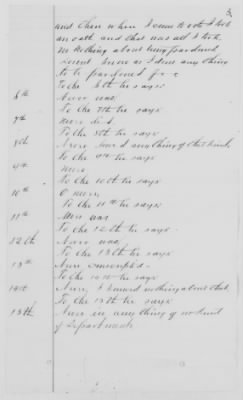 3
and then when I come to vote I took
an oath and that was all I took.
nothing about being pardoned
know as I done any thing
to be pardoned for
To the 6th he says
6th Never was
To the 7th he says
7th
To the 8th he says
8th Never heard anything of that kind
To the 9th he says
9th Never
To the 10th he says
10th O never
To the 11th he says
11th Never was
To the 12th he says
12th Never was
To the 13th he says
13th Never
To the 14th he says
14th Never, I knowed nothing about that
To the 15th he says
15th Never in any thing of no kind
of Department